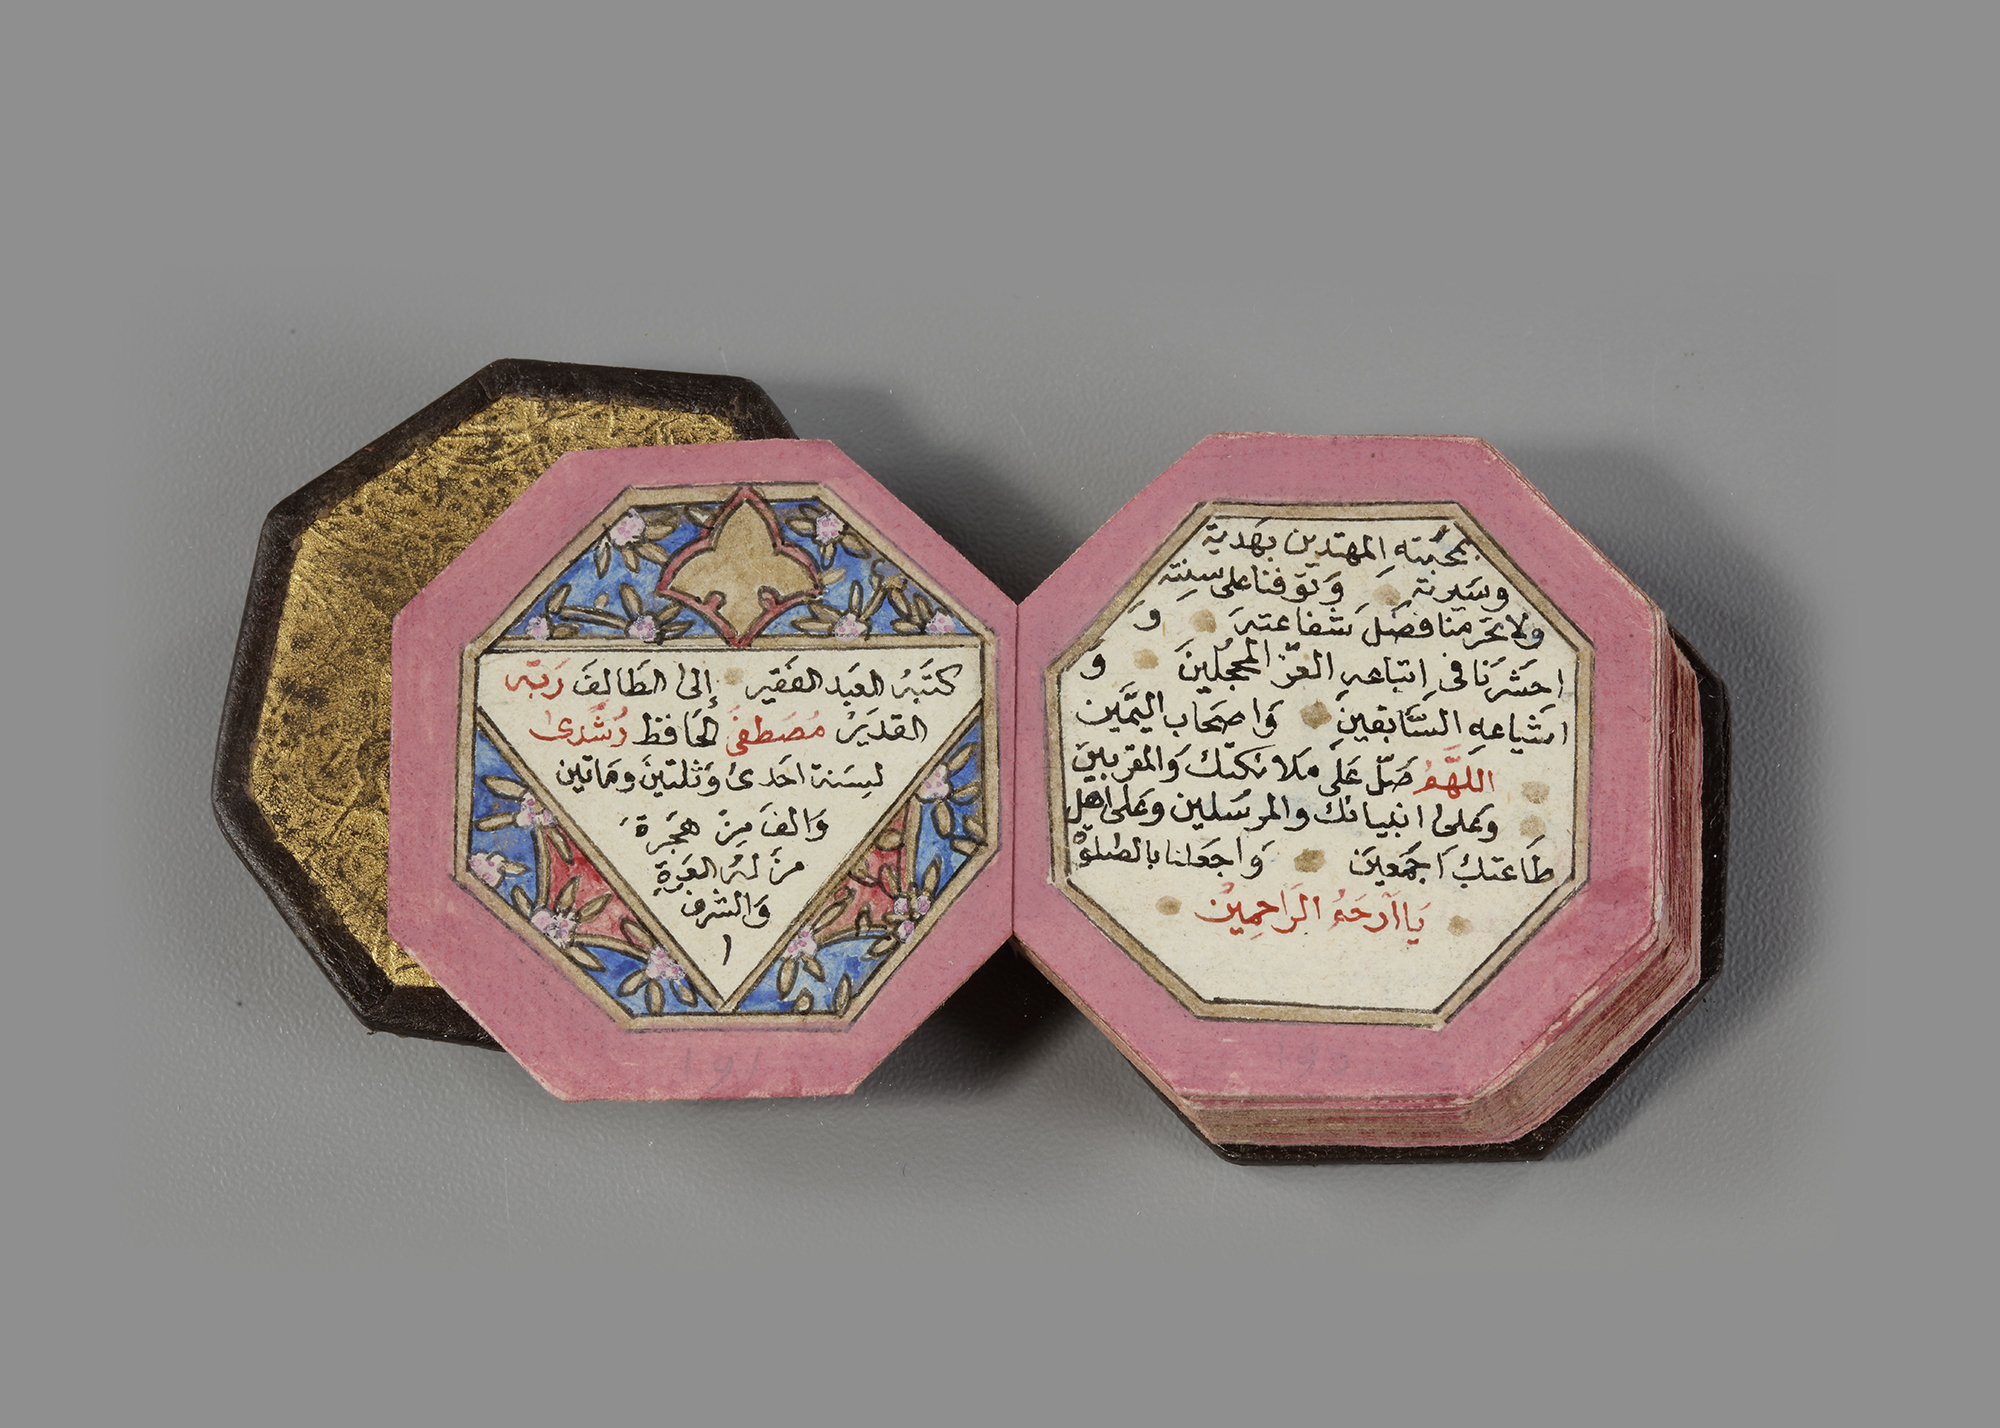 بمحبته المهتدين بهدية
وسيرته وتوفنا على سنته
ولا تحرمنا فضل شفاعته و
احشرنا فى اتباعه الغرّ المحجلين و
اشياعه السَّابقين وَاصحاب اليمَين
اللهمُ صَلّ عَلى ملائكتك وَالمقربين
وعلى انبيائك والمرسلين وعلى اهل
طاعتك اجمعين وَاجعلنا بالصلوة
يَا اَرحَمُ الرَاحمِينْ
كتَبَهُ العَبد الفَقير إلى الطالف رَبّه
القدَيرْ مُصطفىُ الحافظ رُشدى
لسَنة احَدىُ وَثلثينَ ومأتين
وَالفَ مِنْ هجرَة
مَنْ لهُ العزة
وَالشرف
١
١٩١
١٩٠